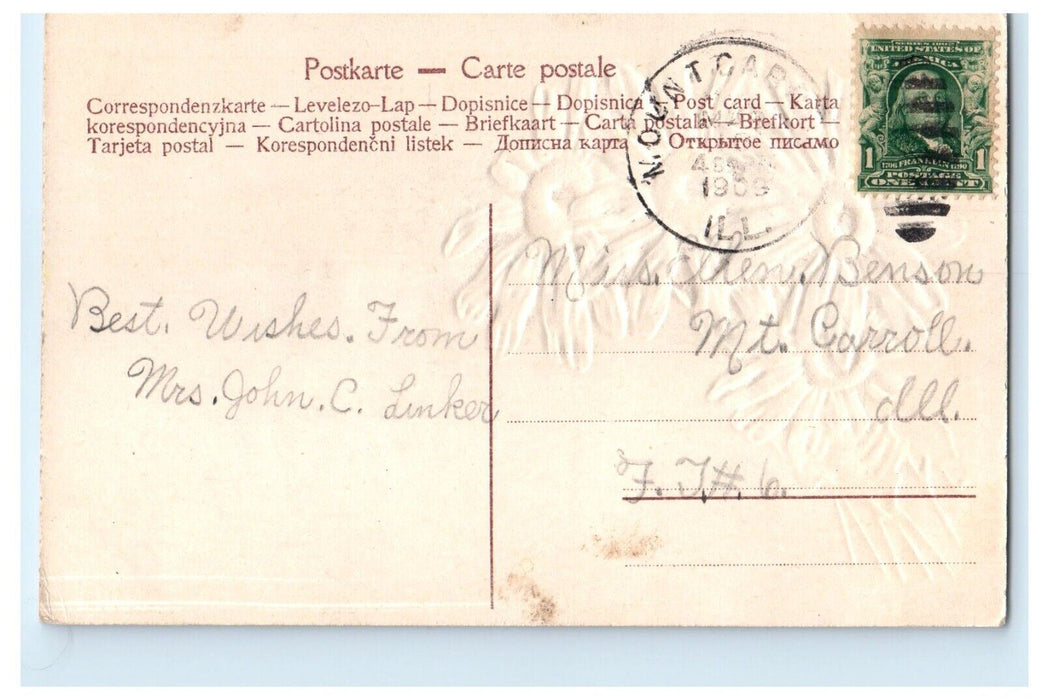 Postkarte — Carte postale
Correspondenzkarte — Levelezo-Lap — Dopisnice — Dopisnica — Post card — Karta
korespondencyjna — Cartolina postale — Briefkaart — Carta postala — Brefkort —
Tarjeta postal — Korespondenčni listek — Дописна карта — Открытое письмо
MOUNT CARROLL
1909
ILL.
SERIES 1902
UNITED STATES OF
AMERICA
1 1706 FRANKLIN 1790 1
POSTAGE
ONE CENT
Best. Wishes. From
Mrs. John. C. Linker
Miss. Ellen. Benson
Mt. Carroll.
Ill.